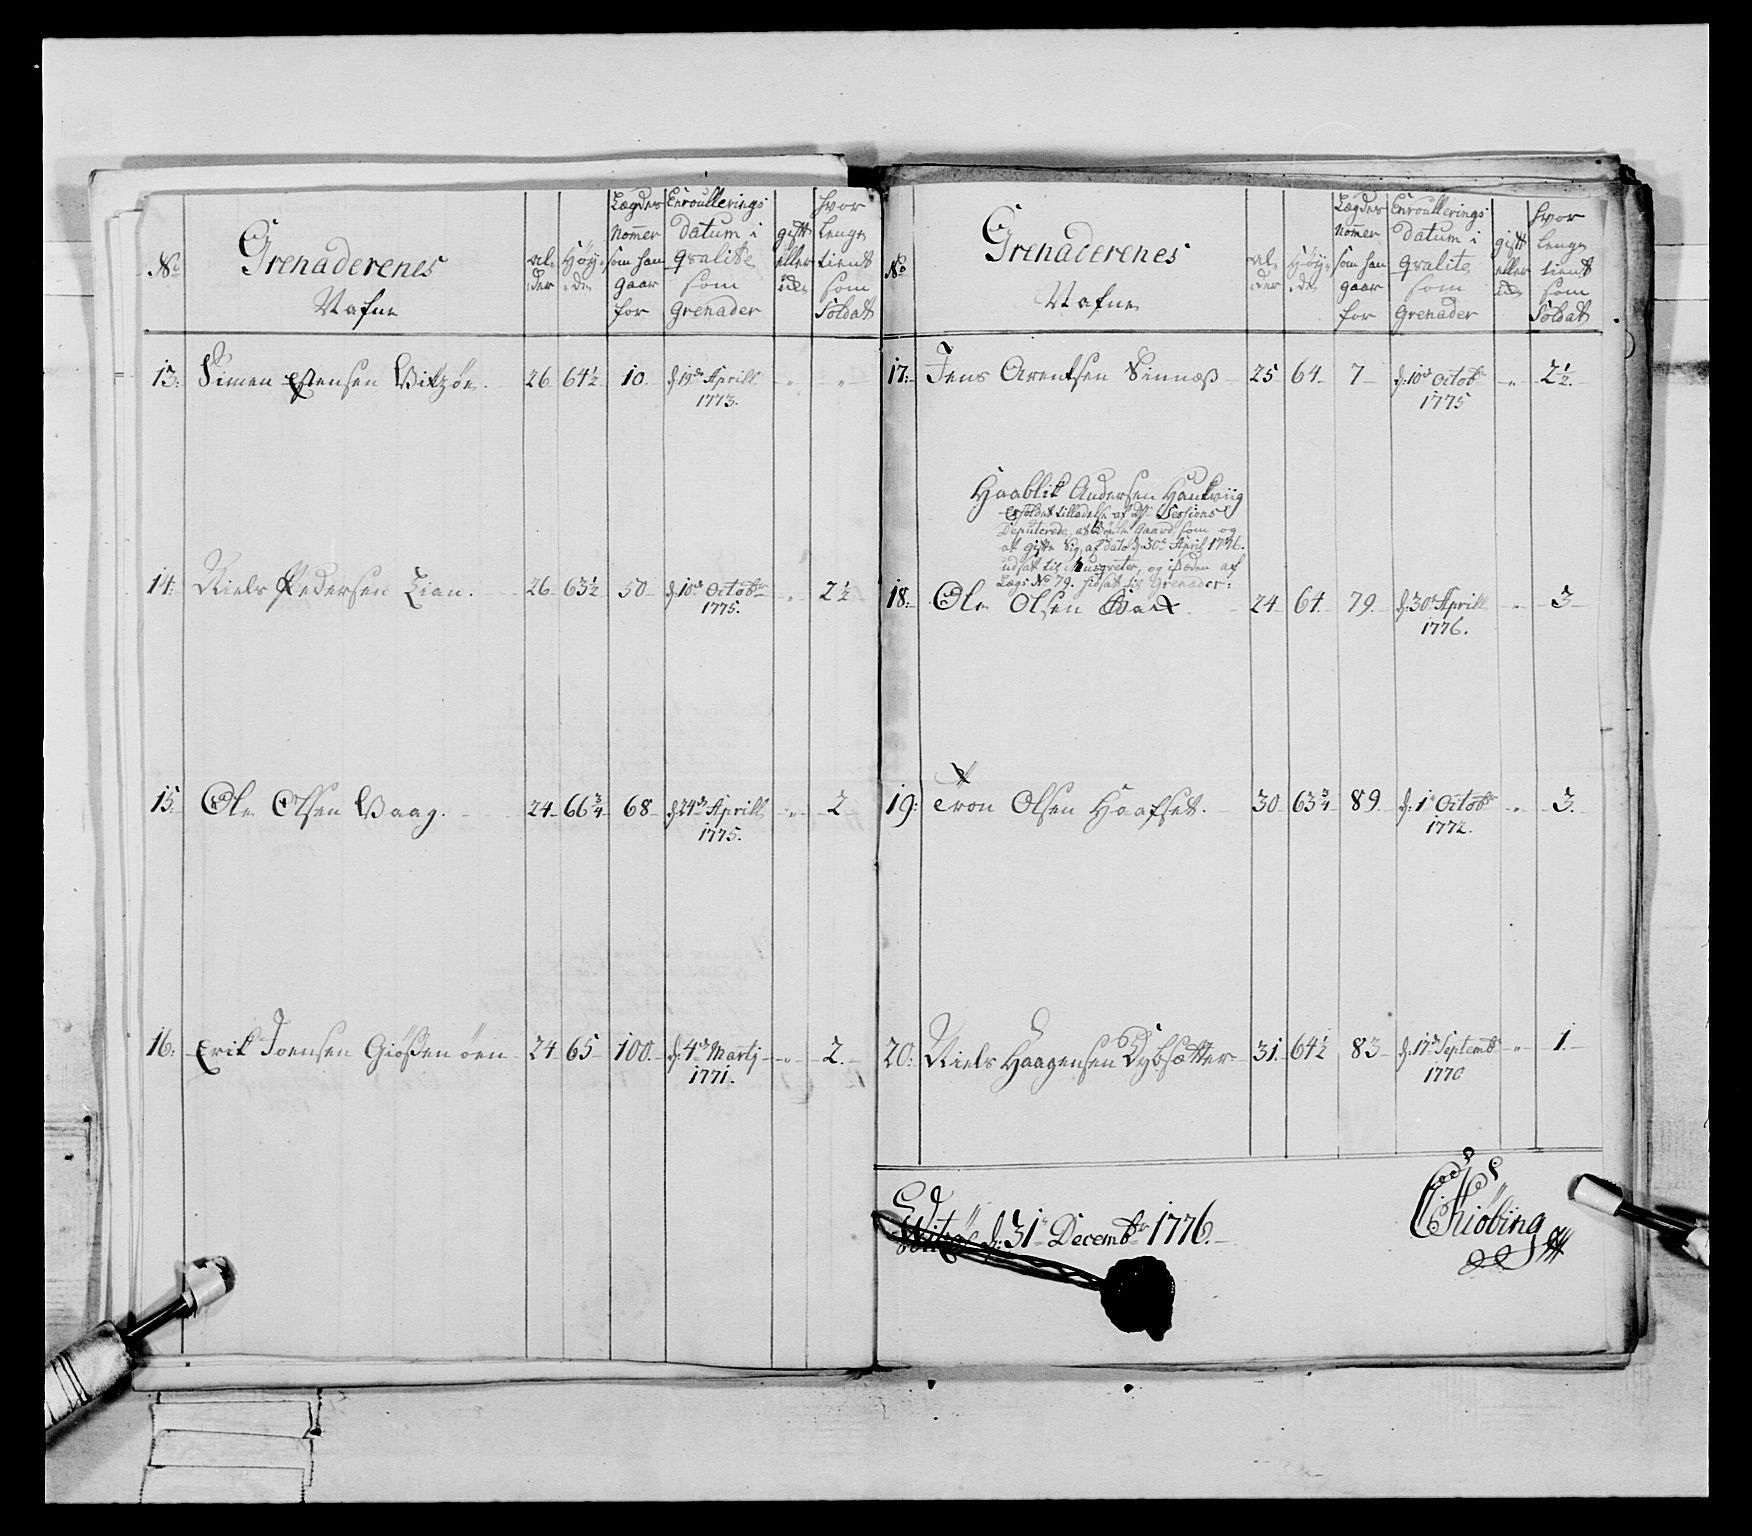 No
Grenaderenes
Nafne
al-
der
Høy-
de
Lægdes
Nommer
som han
gaar
for
Enroullerings
datum i
Qvalite
som
Grenader
gift
eller
ikke
hvor
lenge
tient
som
Soldat
13: Simen Estensen Vitzøe 26 64½ 10. d: 19de Aprill
1773. " "
14: Niels Pedersen Lian. 26 63½ 50 d: 10de Octobr
1775. " 2½
15: Ole Olsen Vaag. 24 66¾ 68 d: 24de Aprill
1775. " 2
16: Erik Joensen Giøssenøen 24 65 100. d: 4de Martj
1771. " 2.
No
Grenaderenes
Nafne
al-
der
Høy-
de
Lægdes
Nommer
som han
gaar
for
Enroullerings
datum i
Qvalite
som
Grenader
gift
eller
ikke
hvor
lenge
tient
som
Soldat
17: Jens Arentsen Sinnæss 25 64 7 d: 10de Octobr
1775 " 2½.
Haablik Andersen Hankviig
Erholdet tilladelse af Sessions
Deputerede, at Gaard, som og
at gifte sig, af dato d: 30te April 1776.
udsat til Musqueter, og isteden af
Lægs No 79. hidsat til Grenader:
18: Ole Olsen 24 64. 79. d: 30te Aprill
1776. " 3
19: Tron Olsen Haafset. 30 63¾ 89 d: 1te Octobr
1772. " 3.
20: Niels Haagensen Dybsætter 31. 64½ 83 d: 17de Septembr
1770 " 1.
d: 31te Decembr 1776.
Kiøbing